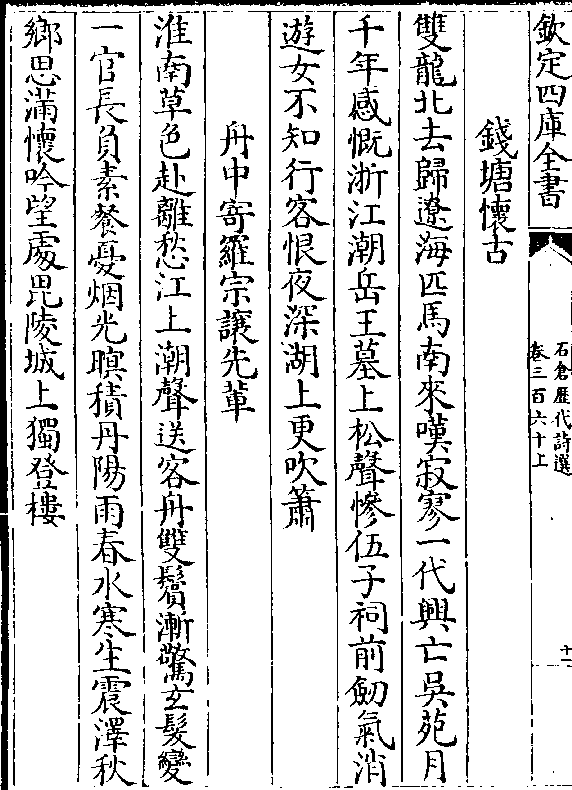 欽定四庫全書
石倉歷代詩選
卷三百六十上
十一
錢塘懷古
雙龍北去歸遼海匹馬南來嘆寂寥一代興亡吳苑月
千年感慨浙江潮岳王墓上松聲慘伍子祠前劒氣消
遊女不知行客恨夜深湖上更吹簫
舟中寄羅宗讓先軰
淮南草色赴離愁江上潮聲送客舟雙鬢漸驚玄髮變
一官長負素餐憂烟光暝積丹陽雨春水寒生震澤秋
鄉思滿懷吟望處毘陵城上獨登樓